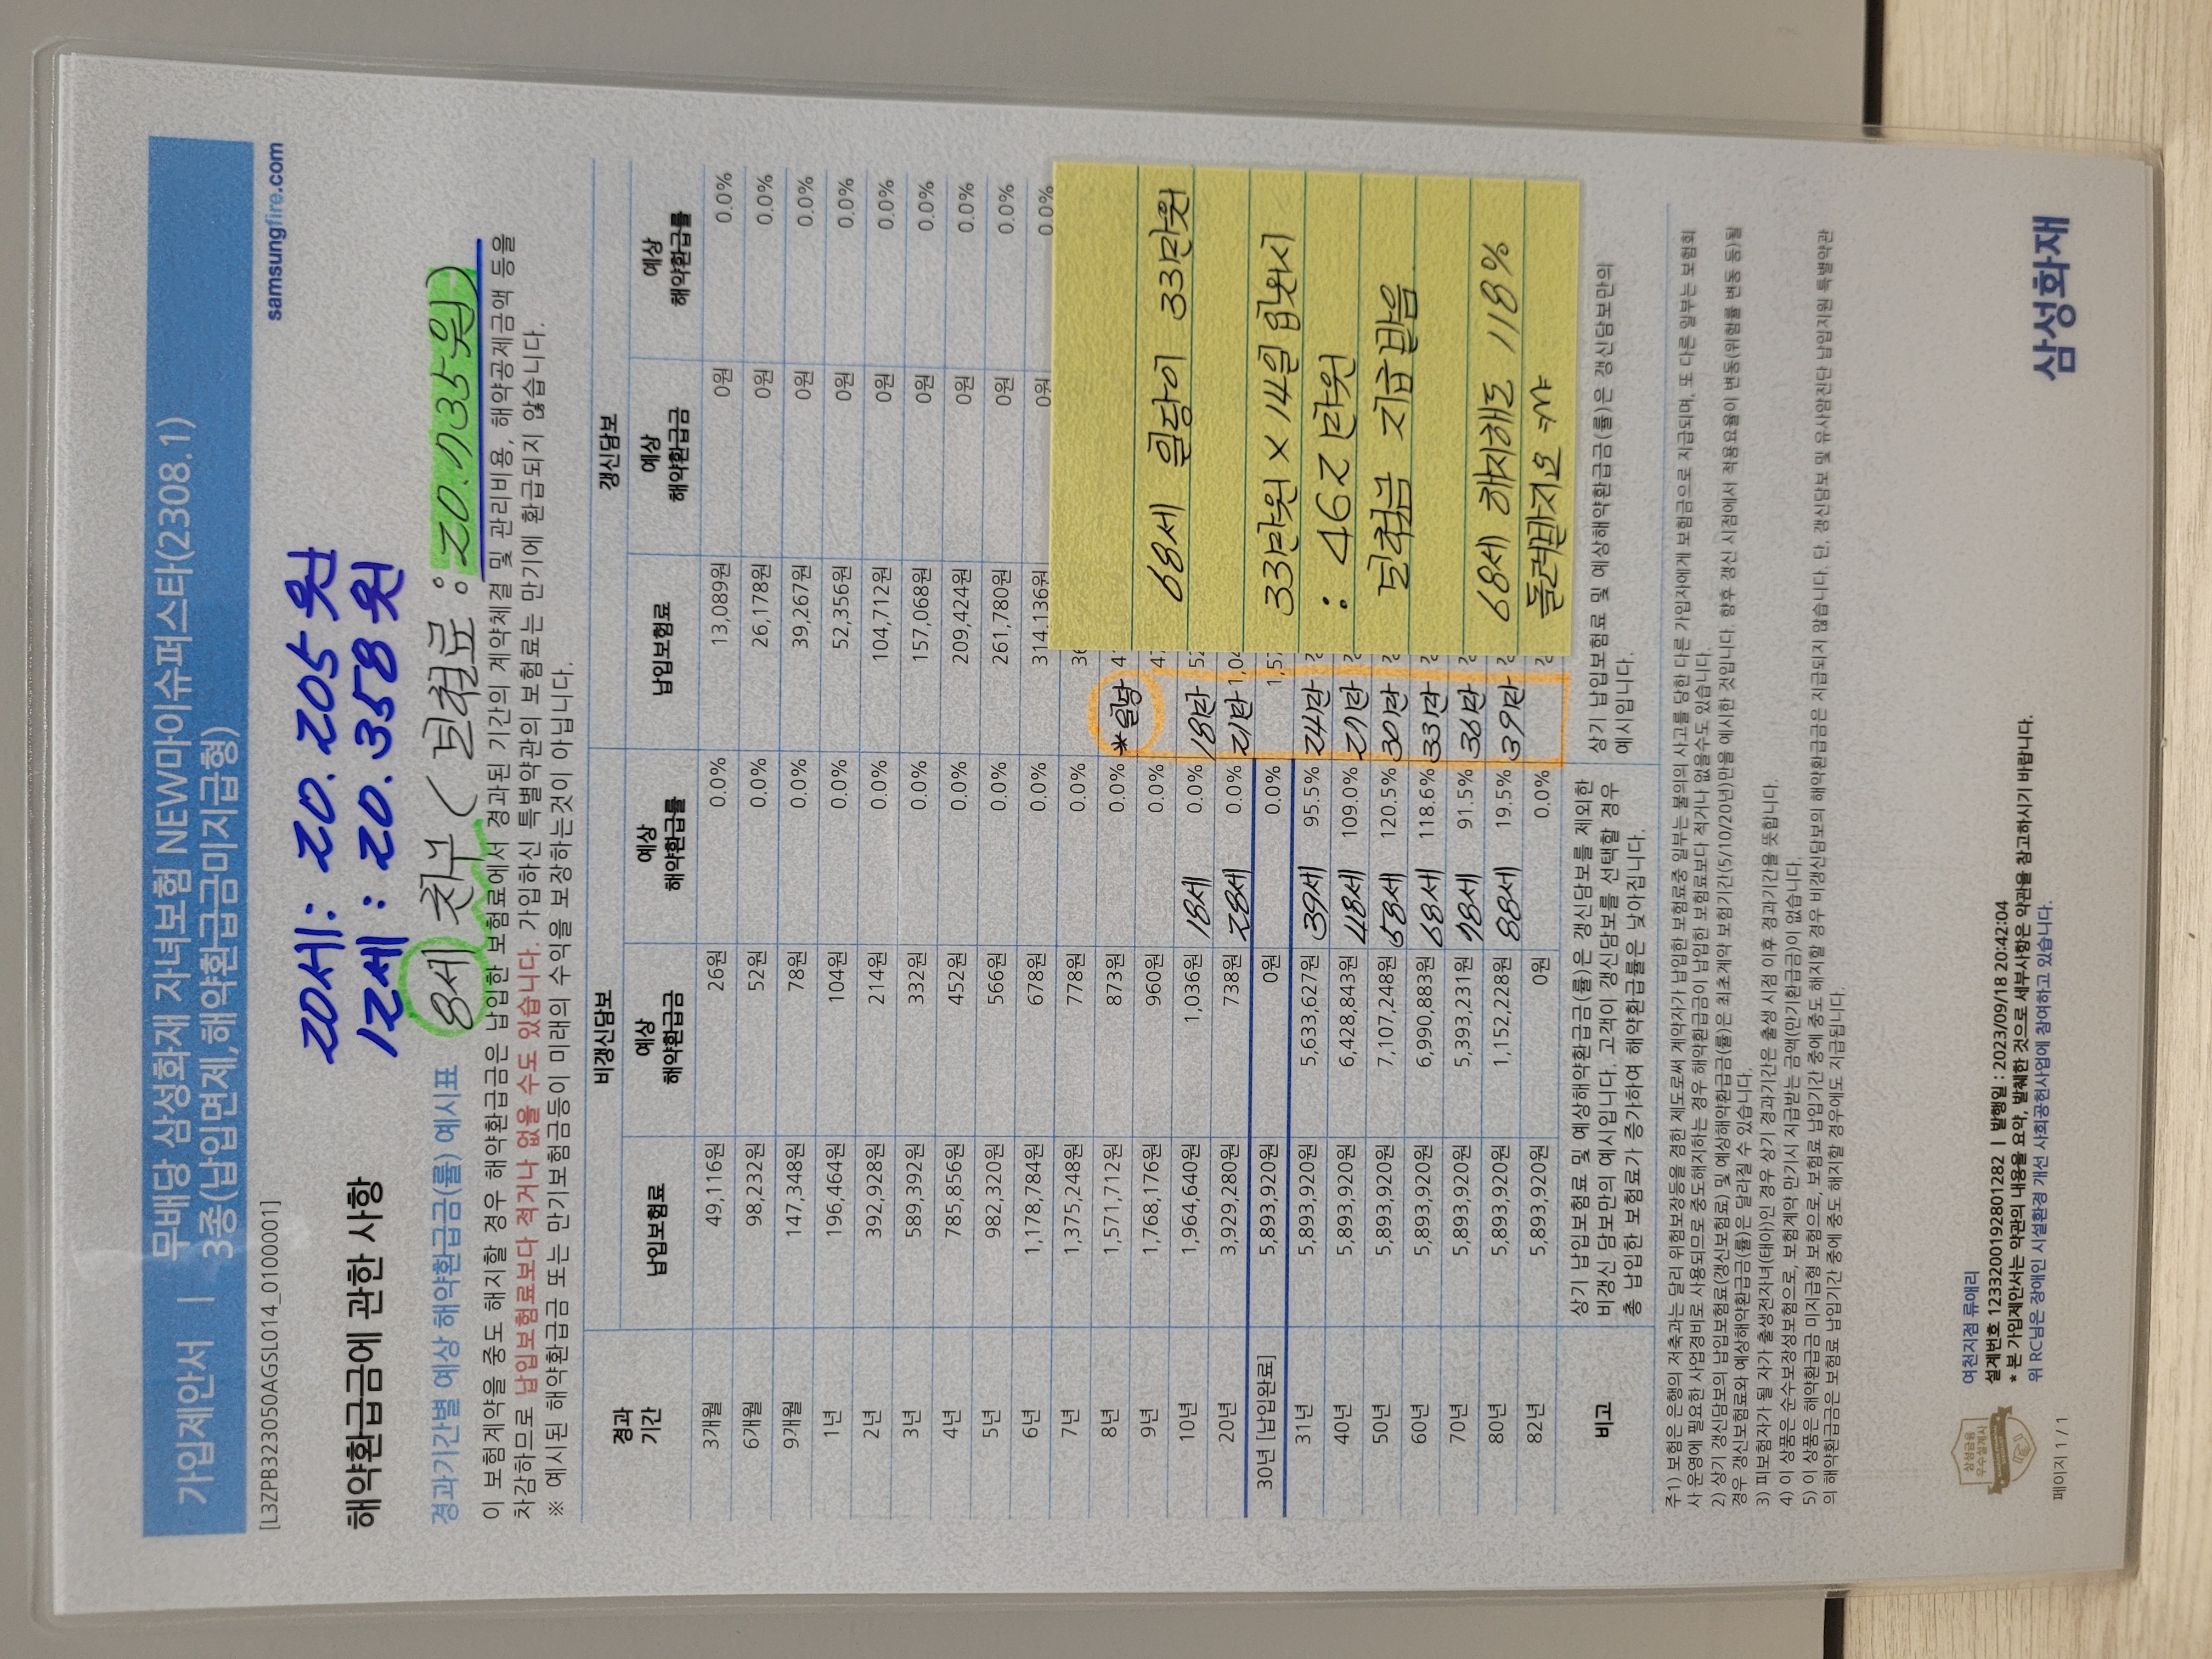 가입제안서 | 무배당 삼성화재 자녀보험 NEW마이슈퍼스타(2308.1)
3종(납입면제,해약환급금미지급형)
[L3ZPB323050AGSL014_0100001]
samsungfire.com
20세: 20.205원
12세: 20.358원
해약환급금에 관한 사항
8세 차부 (보험료: 20.735원)
경과기간별 예상 해약환급금(률) 예시표
이 보험계약을 중도 해지할 경우 해약환급금은 납입한 보험료에서 경과된 기간의 계약체결 및 관리비용, 해약공제금액 등을
차감하므로 납입보험료보다 적거나 없을 수도 있습니다. 가입하신 특별약관의 보험료는 만기에 환급되지 않습니다.
※ 예시된 해약환급금 또는 만기보험금등이 미래의 수익을 보장하는것이 아닙니다.
경과 기간 비갱신담보 갱신담보
납입보험료 예상 해약환급금 예상 해약환급률 납입보험료 예상 해약환급금 예상 해약환급률
3개월 49,116원 26원 0.0% 13,089원 0원 0.0%
6개월 98,232원 52원 0.0% 26,178원 0원 0.0%
9개월 147,348원 78원 0.0% 39,267원 0원 0.0%
1년 196,464원 104원 0.0% 52,356원 0원 0.0%
2년 392,928원 214원 0.0% 104,712원 0원 0.0%
3년 589,392원 332원 0.0% 157,068원 0원 0.0%
4년 785,856원 452원 0.0% 209,424원 0원 0.0%
5년 982,320원 566원 0.0% 261,780원 0원 0.0%
6년 1,178,784원 678원 0.0% 314,136원 0원 0.0%
7년 1,375,248원 778원 0.0%
8년 1,571,712원 873원 0.0% *일당
9년 1,768,176원 960원 0.0%
10년 1,964,640원 1,036원 18세 0.0% 18만
20년 3,929,280원 738원 28세 0.0% 21만
30년 [납입완료] 5,893,920원 0원 0.0%
31년 5,893,920원 5,633,627원 39세 95.5% 24만
40년 5,893,920원 6,428,843원 48세 109.0% 27만
50년 5,893,920원 7,107,248원 58세 120.5% 30만
60년 5,893,920원 6,990,883원 68세 118.6% 33만
70년 5,893,920원 5,393,231원 78세 91.5% 36만
80년 5,893,920원 1,152,228원 88세 19.5% 39만
82년 5,893,920원 0원 0.0%
68세 일당이 33만원
33만원 × 14일 입원시
: 462만원
보험금 지급받음.
68세 해지해도 118%
돌려받지요
비고
상기 납입보험료 및 예상해약환급금(률)은 갱신담보를 제외한
비갱신 담보만의 예시입니다. 고객이 갱신담보를 선택할 경우
총 납입한 보험료가 증가하여 해약환급률은 낮아집니다.
상기 납입보험료 및 예상해약환급금(률)은 갱신담보만의
예시입니다.
주1) 보험은 은행의 저축과는 달리 위험보장등을 겸한 제도로써 계약자가 납입한 보험료중 일부는 불의의 사고를 당한 다른 가입자에게 보험금으로 지급되며, 또 다른 일부는 보험회
사 운영에 필요한 사업경비로 사용되므로 중도해지하는 경우 해약환급금이 납입한 보험료보다 적거나 없을수도 있습니다.
2) 상기 갱신담보의 납입보험료(갱신보험료) 및 예상해약환급금(률)은 최초계약 보험기간(5/10/20년)만을 예시한 것입니다. 향후 갱신 시점에서 적용요율이 변동(위험률 변동 등)될
경우 갱신보험료와 예상해약환급금(률)은 달라질 수 있습니다.
3) 피보험자가 될 자가 출생전자녀(태아)인 경우 상기 경과기간은 출생 시점 이후 경과기간을 뜻합니다.
4) 이 상품은 순수보장성보험으로, 보험계약 만기시 지급받는 금액(만기환급금)이 없습니다.
5) 이 상품은 해약환급금 미지급형 보험으로, 보험료 납입기간 중에 중도 해지할 경우 비갱신담보의 해약환급금은 지급되지 않습니다. 단, 갱신담보 및 유사암진단 납입지원 특별약관
의 해약환급금은 보험료 납입기간 중에 중도 해지할 경우에도 지급됩니다.
삼성금융
우수설계사
여천지점 류애리
설계번호 1233200192801282 | 발행일 : 2023/09/18 20:42:04
* 본 가입제안서는 약관의 내용을 요약, 발췌한 것으로 세부사항은 약관을 참고하시기 바랍니다.
위 RC님은 장애인 시설환경 개선 사회공헌사업에 참여하고 있습니다.
페이지 1 / 1
삼성화재